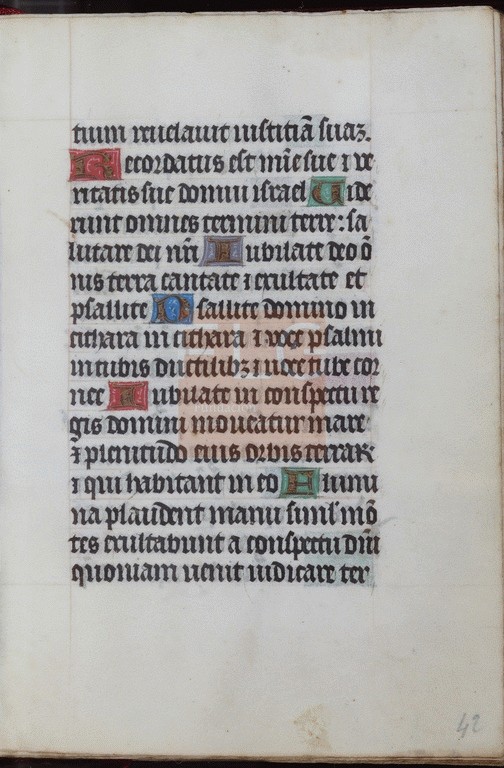 tuum reuelauit iustitiã suaʒ.
Recordatus est mĩe sue ⁊ ve
ritatis sue domui israel Uide
runt omnes termini terre: sa
lutare dei nr̃i Iubilate deo õ
nis terra cantate ⁊ exultate et
psallite Psallite domino in
cithara in cithara ⁊ voce psalmi
in tubis ductilibʒ ⁊ uoce tube cor
nee Iubilate in conspectu re
gis domini moueatur mare
⁊ plenitudo eius orbis terraꝝ
⁊ qui habitant in eo Flumi
na plaudent manu simĺ mõ
tes exultabunt a conspectu dñi
quoniam uenit iudicare ter
fundación
42